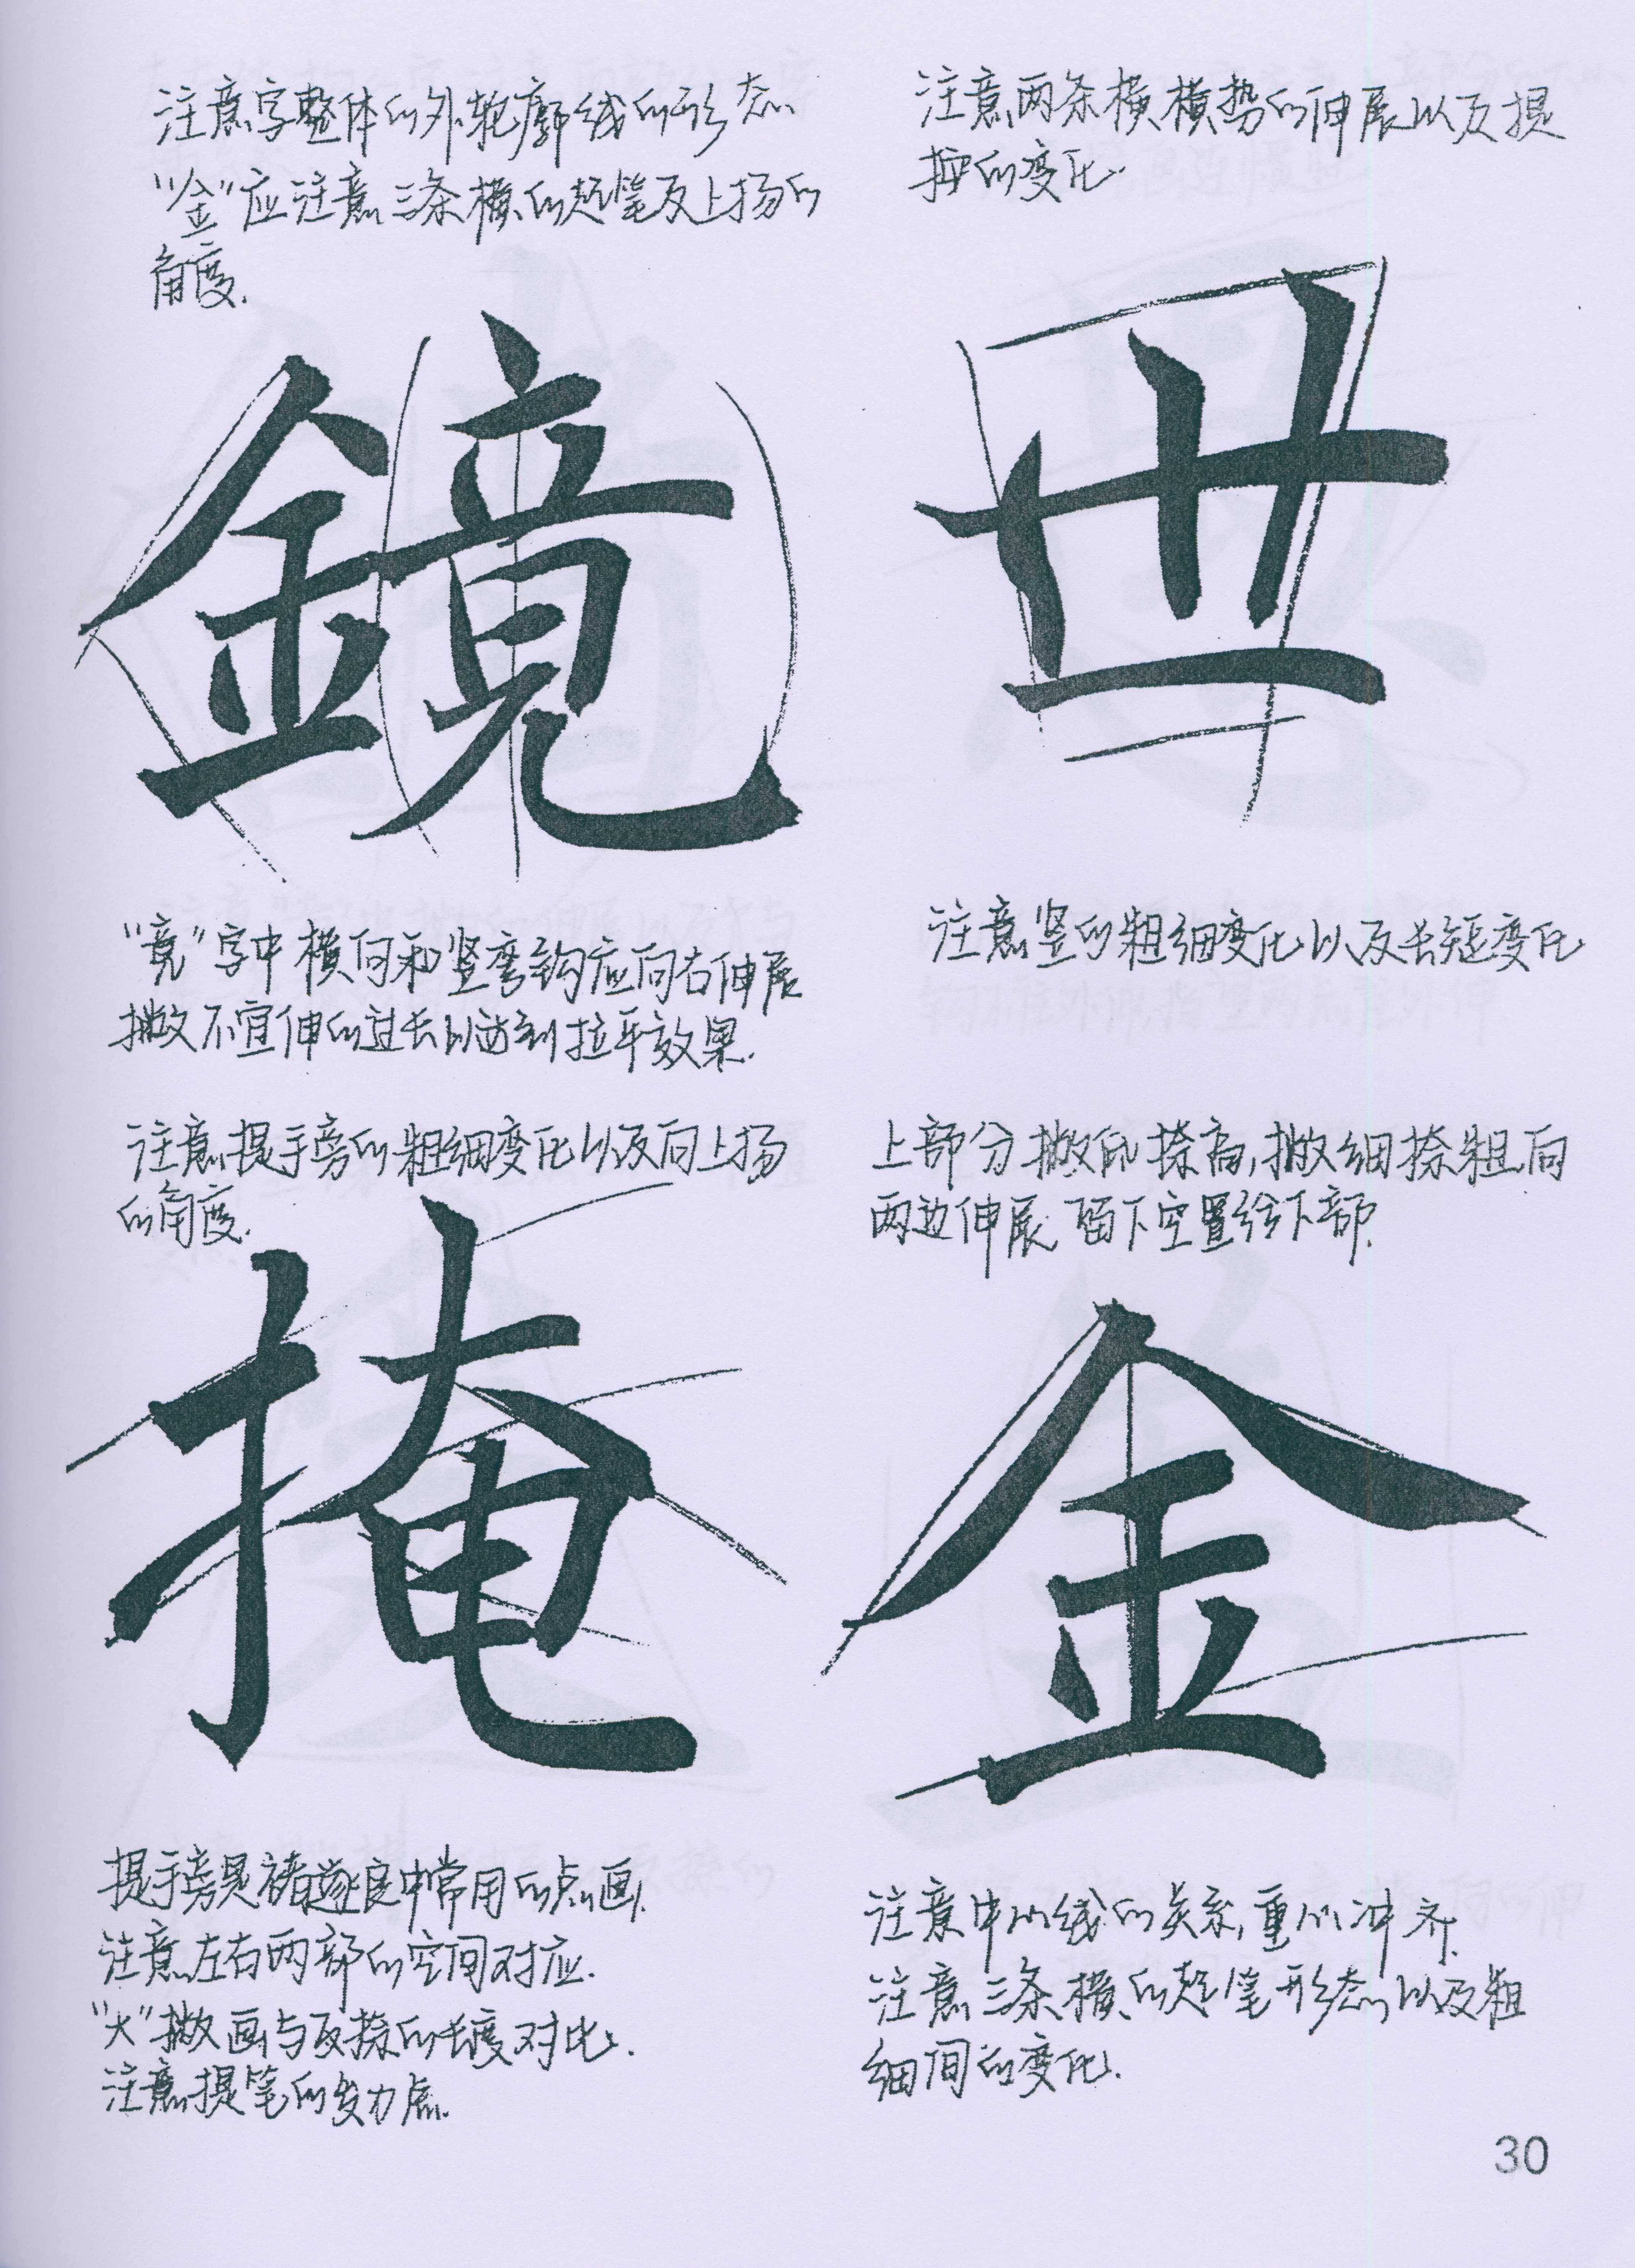 注意字整体的外轮廓线的形态
“金”应注意三条横的起笔及上扬的
角度.
鏡
“竟”字中横向和竖弯钩应向右伸展
撇不宜伸的过长以达到拉平效果.
注意两条横横势的伸展以及提
按的变化.
世
注意竖的粗细变化以及长短变化
注意提手旁的粗细变化以及向上扬
的角度.
掩
提手旁是褚遂良中常用的点画.
注意左右两部的空间对应.
“大”撇画与反捺的长度对比.
注意提笔的发力点.
上部分撇低捺高,撇细捺粗向
两边伸展 留下空置给下部.
金
注意中心线的关系,重心冲齐.
注意三条横的起笔形态以及粗
细间的变化.
30